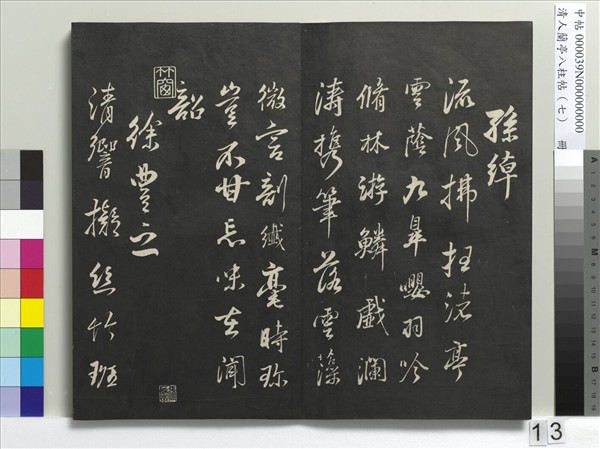 中帖 000039N000000000
清人蘭亭八柱帖(七)
孫綽
流風拂枉渚亭
雲蔭九皐嚶羽吟
脩林游鱗戲瀾
濤攜筆落雲藻
微言剖纖毫時珍
豈不甘忘味在聞
韶
徐豐之
清響擬絲竹班
13